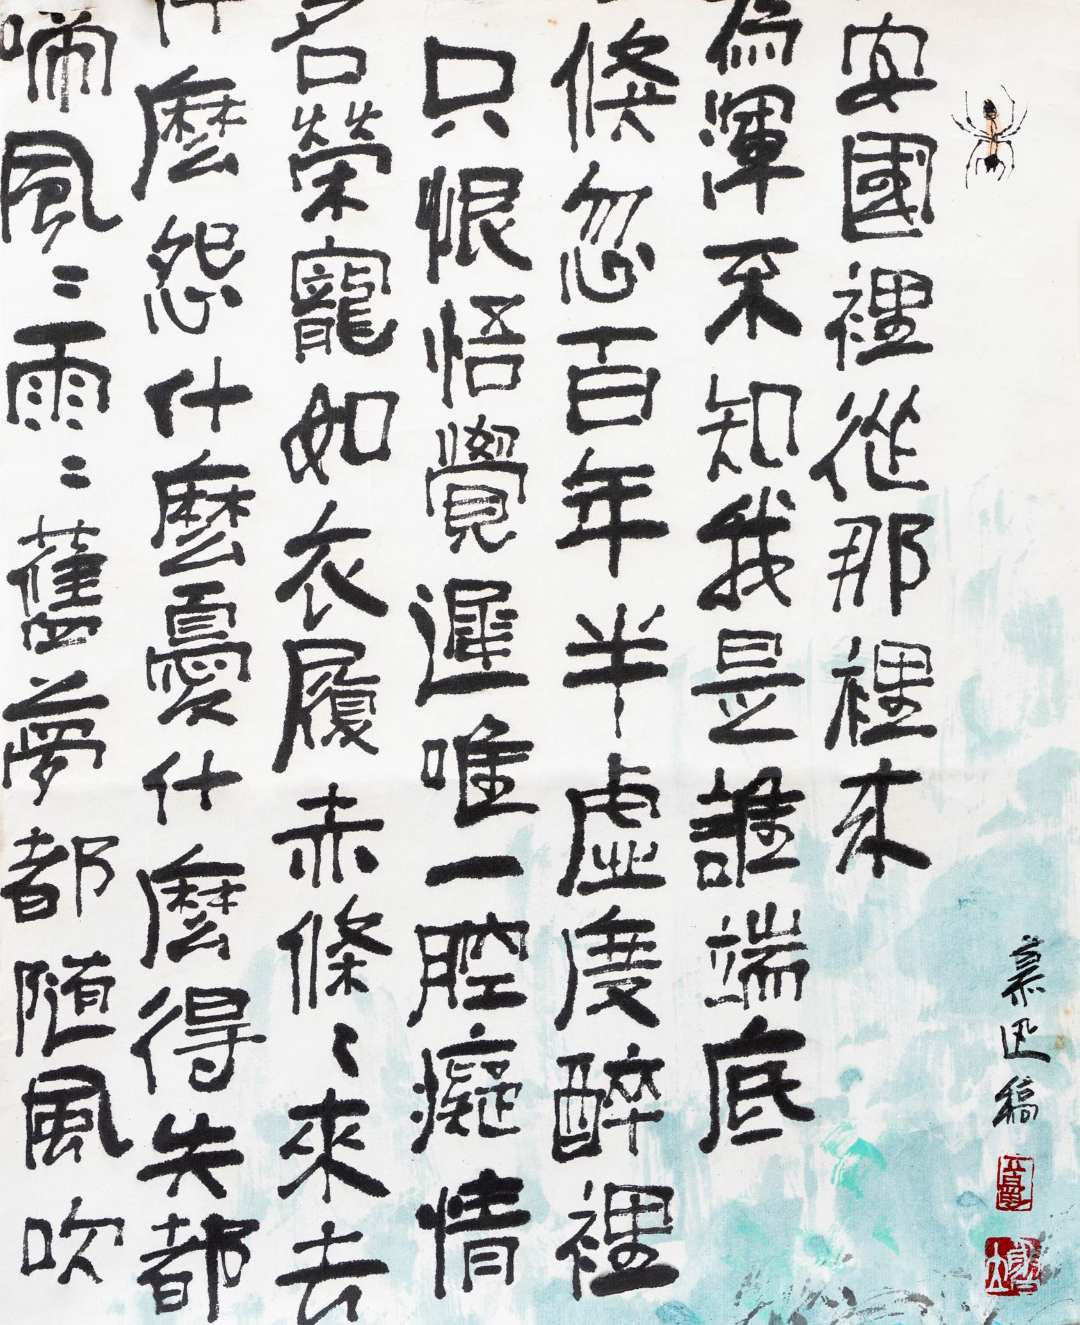 安國裡從那裡來
為渾不知我是誰端底
倏忽百年半虛度醉裡
只恨悟覺遲唯一腔癡情
名榮寵如衣履赤條〻來去
什麼怨什麼憂什麼得失都
啼風〻雨〻舊夢都隨風吹
迅稿